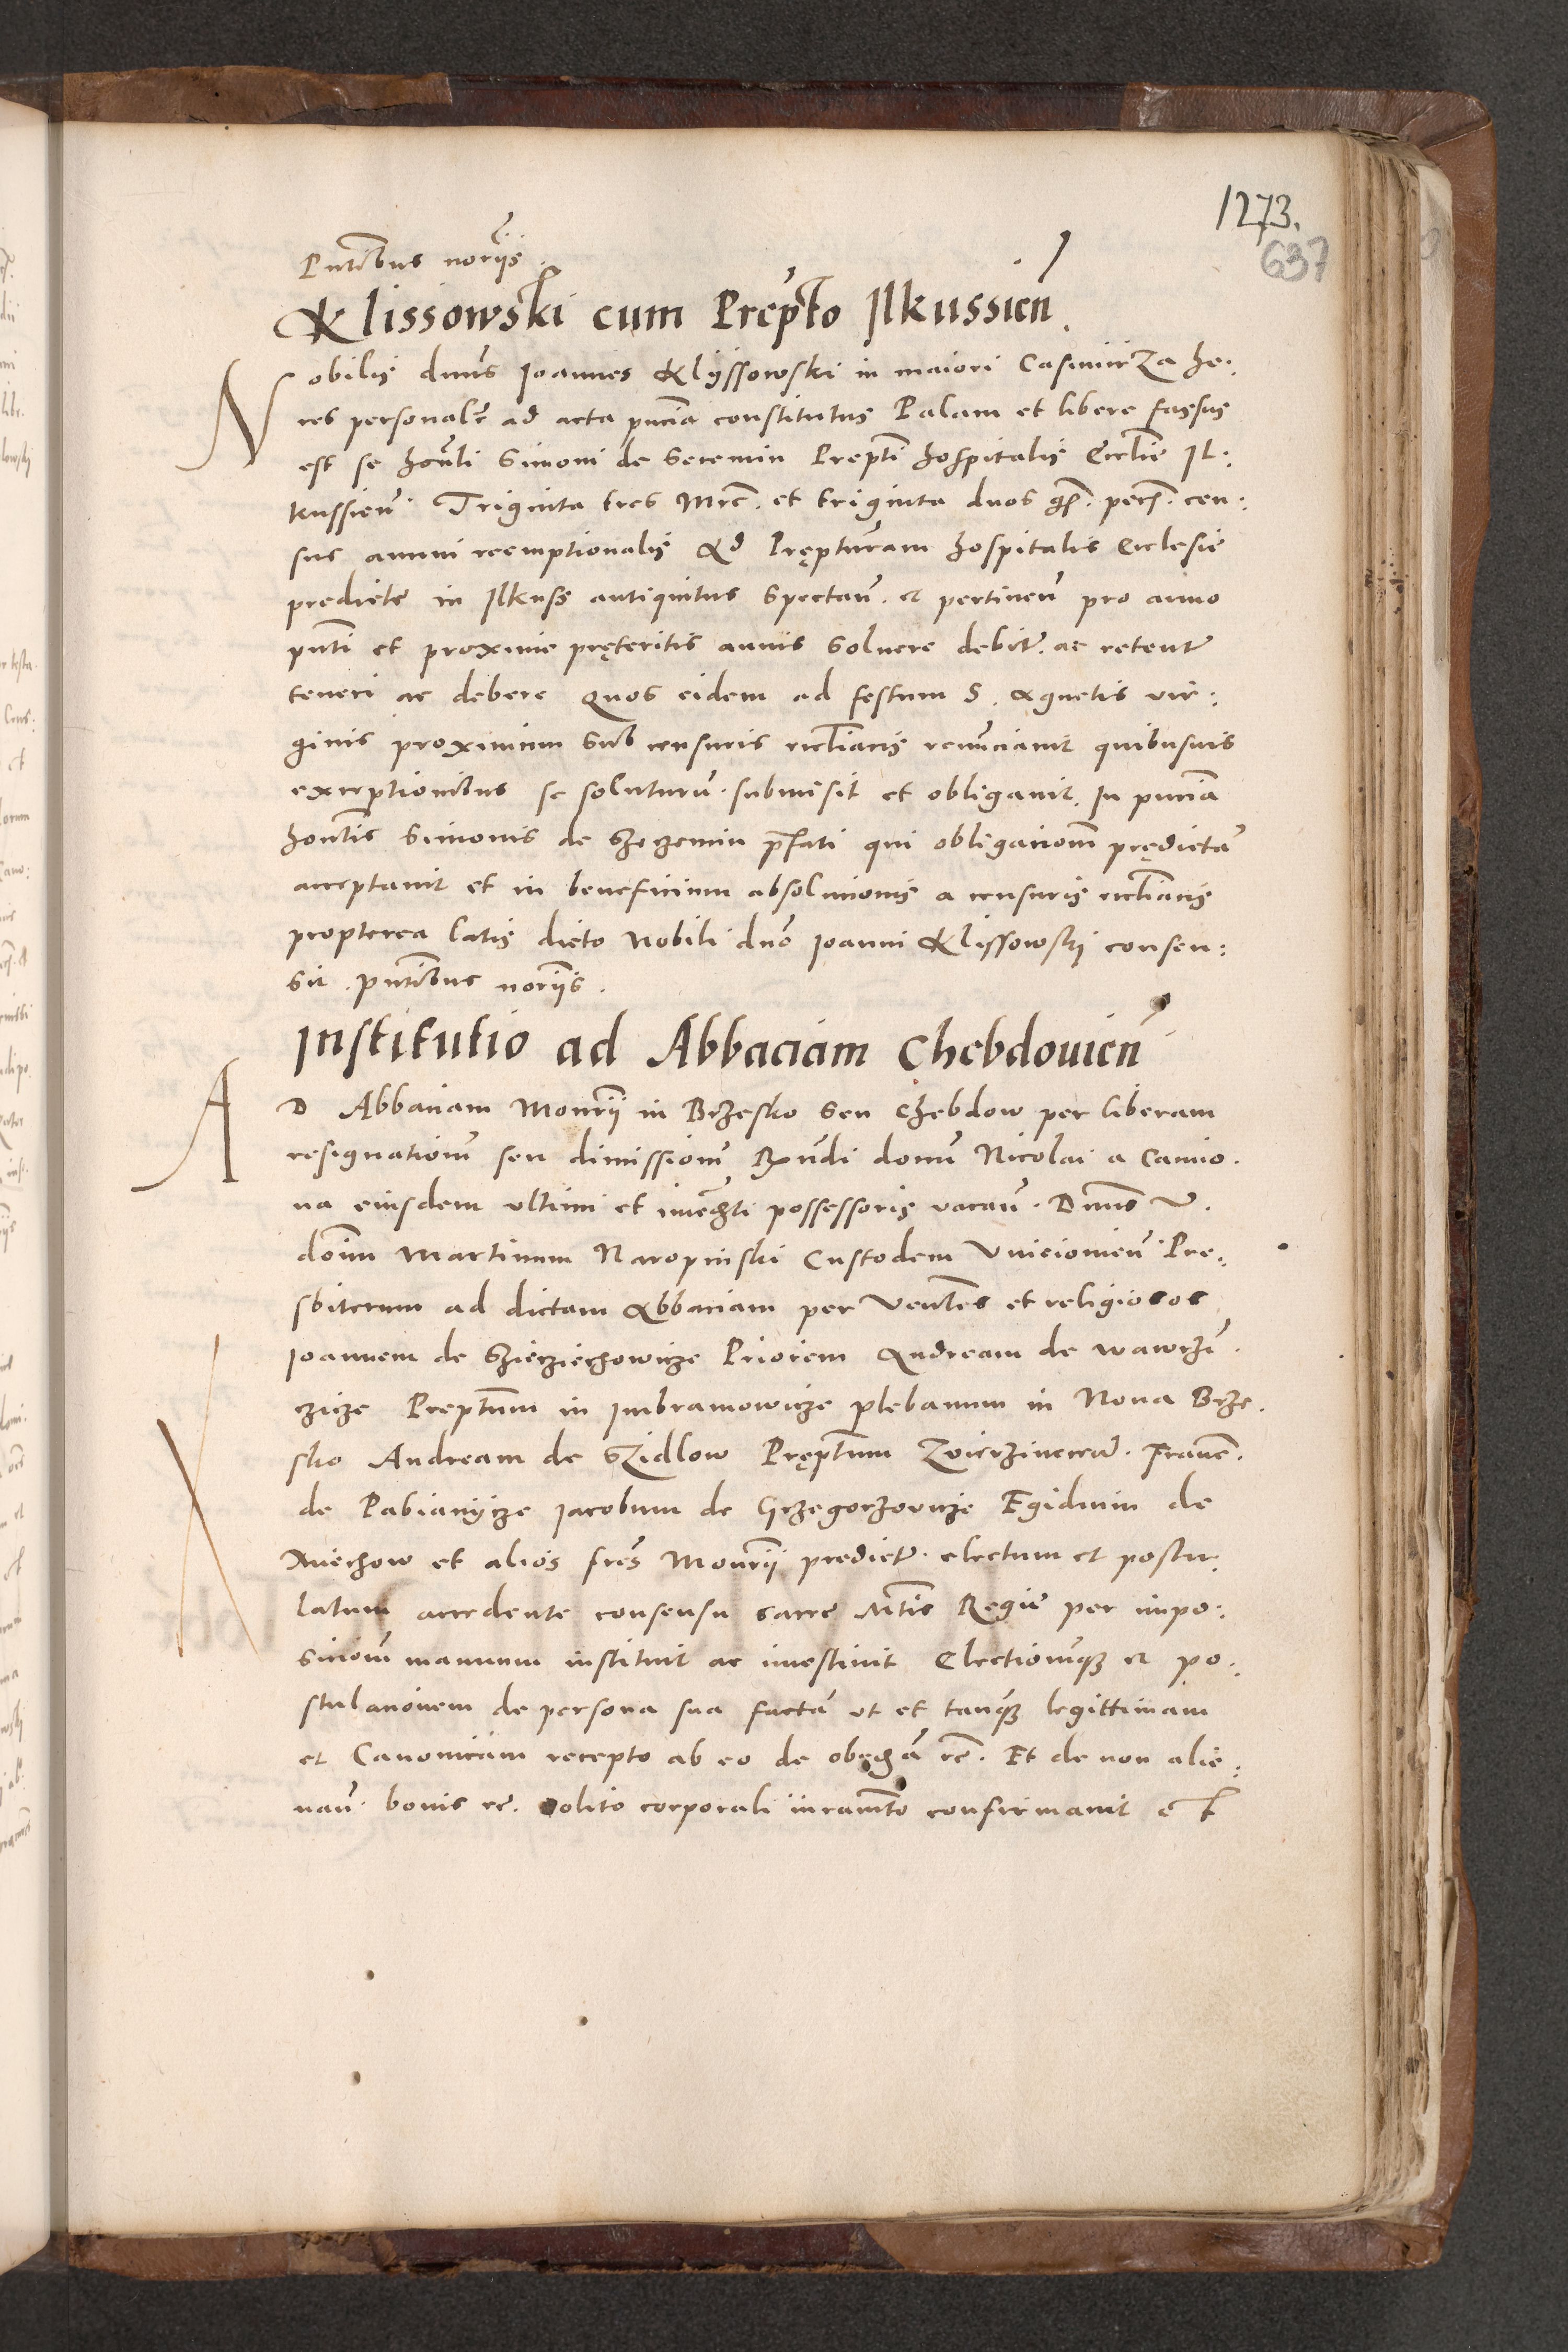 1273.
637
Pntibus noriis.
Klissowski cum Prepto Ilkussien.
Nobilis dnus Ioannes Klyssowski in maiori Casimirza he:
res personalr ad acta pncia constitutus Palam et libere fassus
est se honli Simoni de Secemin Prepti hospitalis Ecclie Il:
kussien. Triginta tres Mrc. et triginta duos gros. pecs. cen:
sus annui reemptionalis Ad Prepturam hospitalis Ecclesie
predicte in Ilkuss antiquitus Spectan. et pertinen pro anno
pnti et proxime preteritis annis Solvere debit. ac retent
teneri ac debere Quos eidem ad festum S. Agnetis vir:
ginis proximum Sub censuris ecclıacis renunciavit quibusuis
exceptionibus se soluturum. submisit et obligavit. In pncia
honlis Simonis de Szeczemin pfati qui obligacionem predictam
acceptavit et in beneficium absolucionis a censuris eccliacis
propterea latis dicto Nobili dno Ioanni Klissowski consen:
sit. Pntibus noriis.
Institutio ad Abbaciam Chebdovien
AD Abbaciam Monrii in Brzesko seu Chebdow per liberam
resignationem seu dimissionem Rndi domi Nicolai a Camio.
na eiusdem ultimi et immedti possessoris vacan. Dnus V.
domi Martinum Naropinski Custodem Unieiovien. Pre:
sbiterum ad dictam Abbaciam per Venles et religiosos
Ioannem de Sziecziechowicze Priorem Andream de Wawrzi
czicze Preptum in Imbramowicze plebanum in Nova Brze.
sko Andream de Szidlow Preptum Zvierzinecen. Franc.
de Pabianycze Iacobum de Grzegorzovicze Egidium de
Miechow et alios fres Monrii predict. electum et postu:
latum accedente consensu sacre Mtis Regie per impo:
sicionem manuum instituit ac investivit Electionemque et po:
stulacionem de persona sua factam ut et tanquam legittimam
et Canonicam recepto ab eo de obedia rc. Et de non alie:
nan. bonis rc. solito corporali iuramto confirmavit Et